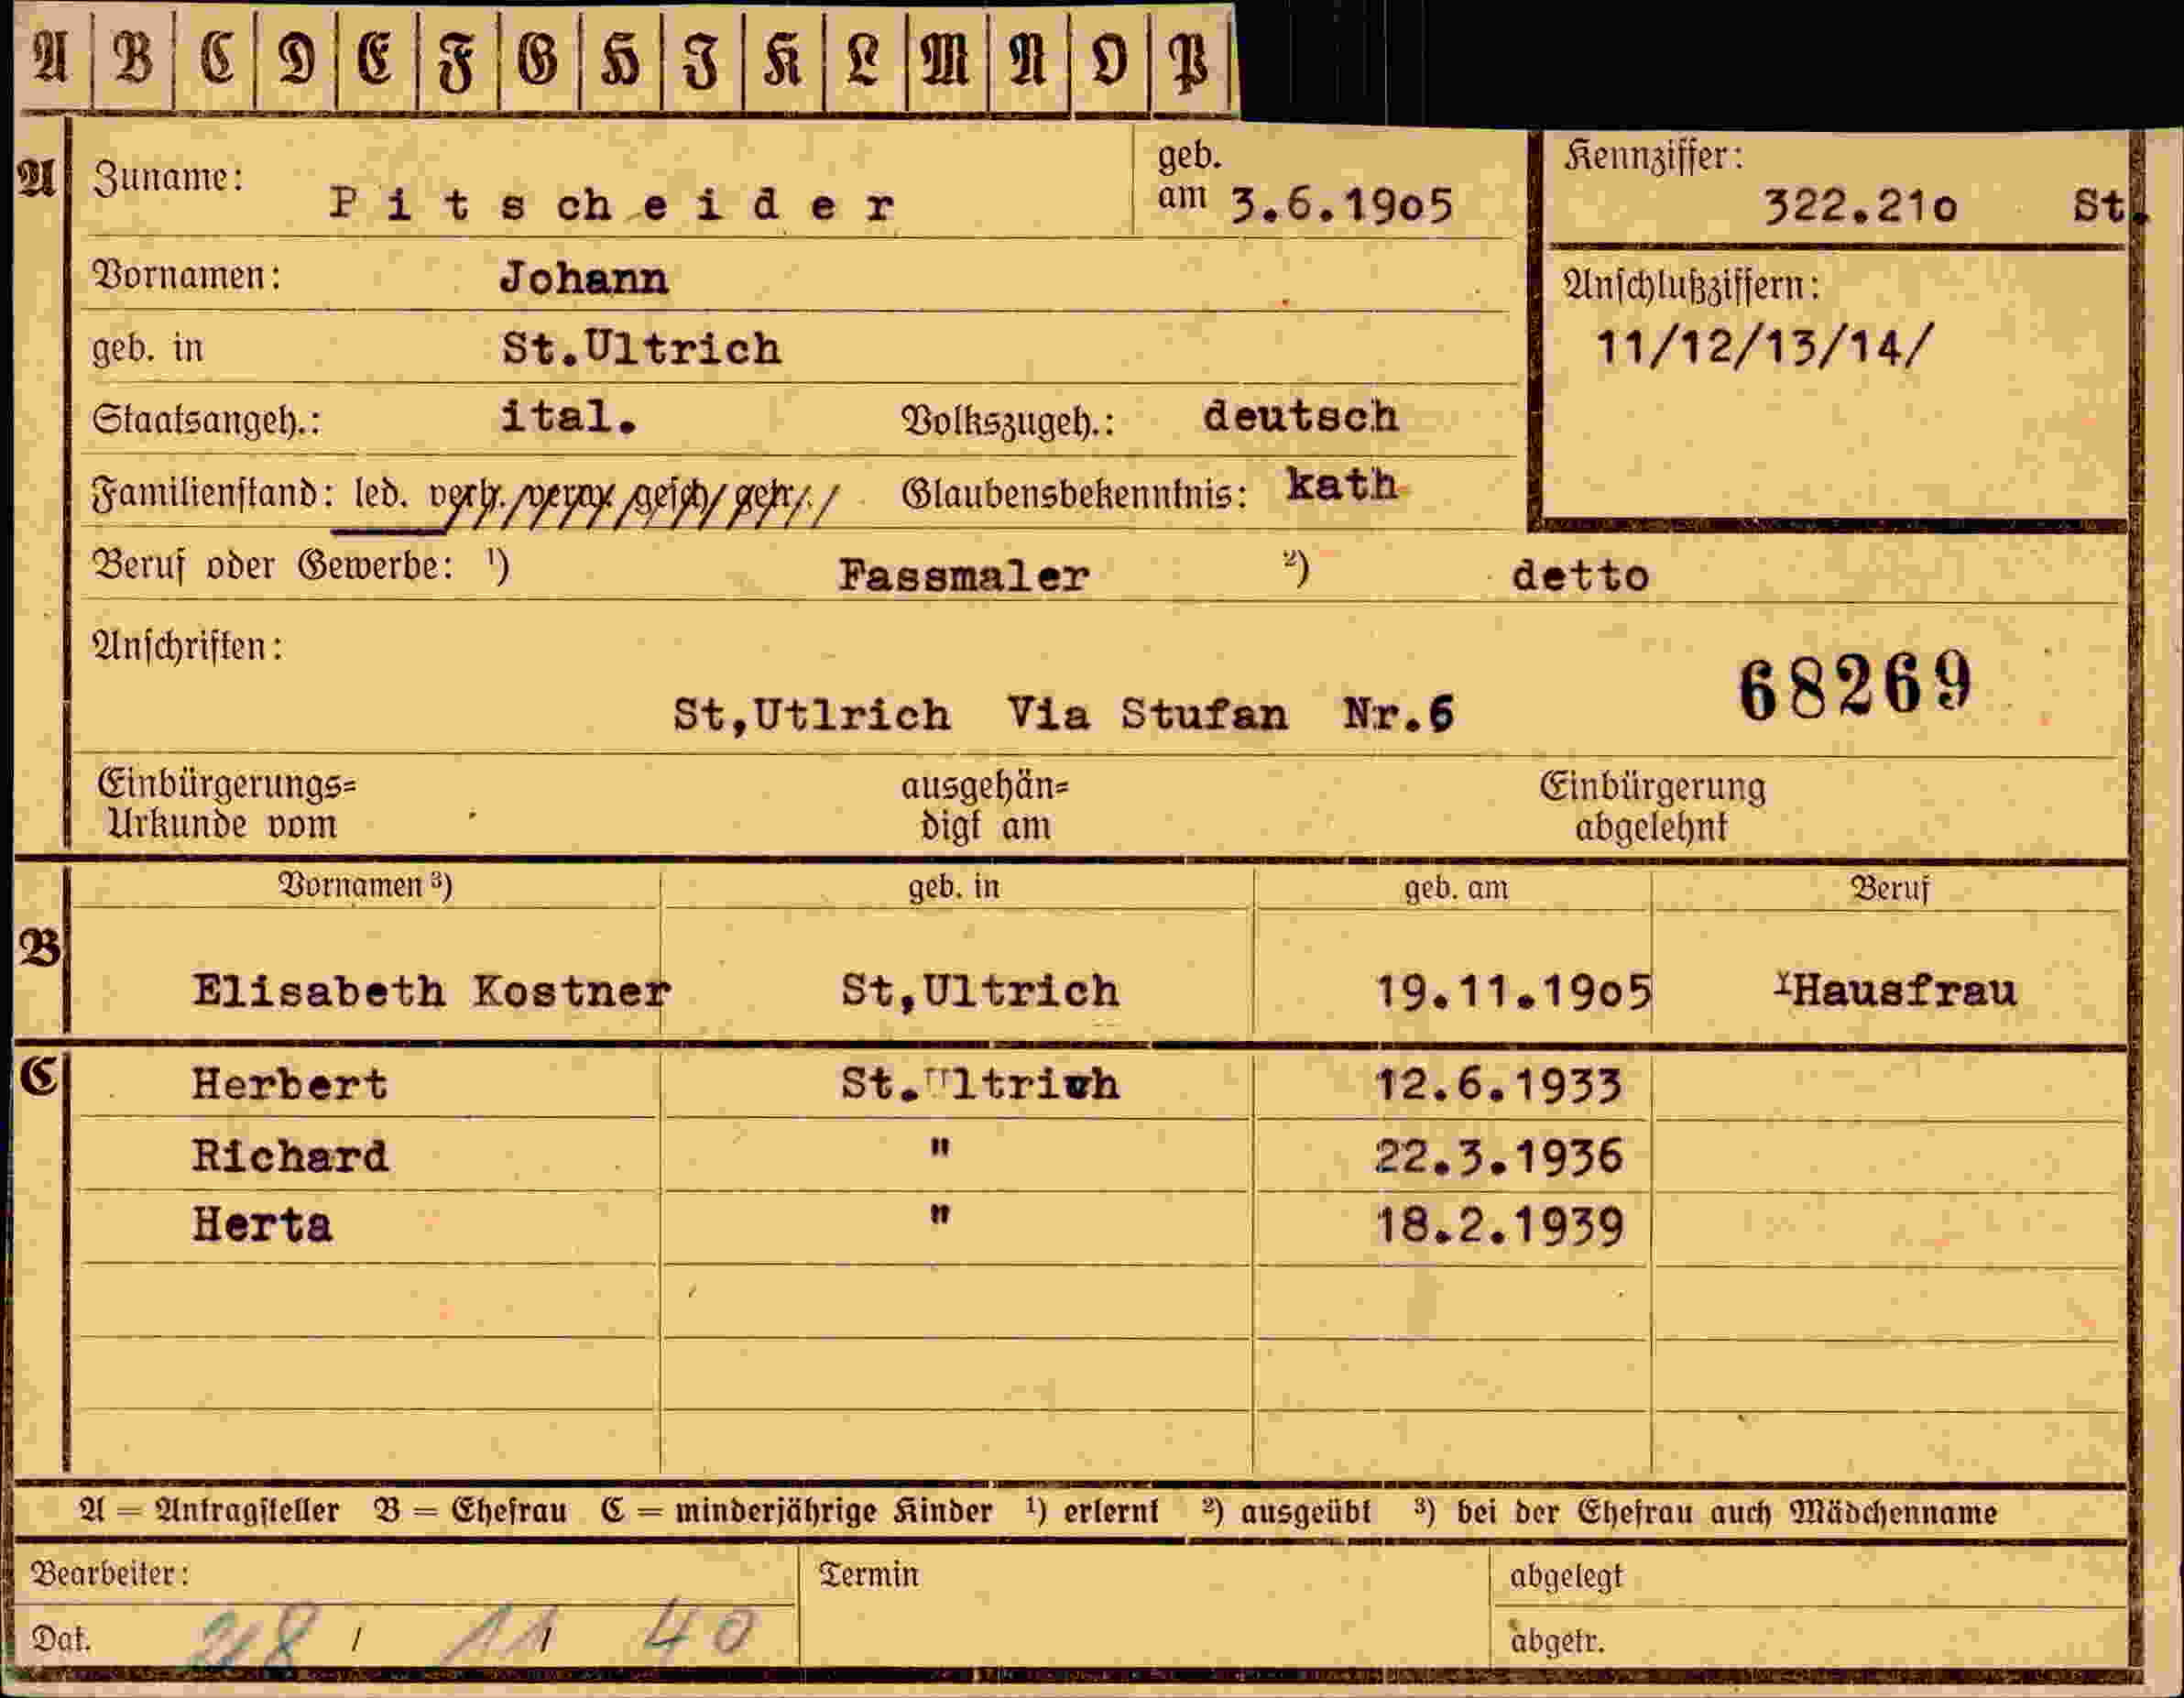 A B C D E F G H I K L M N O P
A Zuname: Pitscheider geb. am 3.6.1905 Kennziffer: 322.210 St.
Vornamen: Johann
Anschlußziffern:
geb. in St.Ultrich 11/12/13/14/
Staatsangeh.: ital. Volkszugeh.: deutsch
Familienstand: led. verh./verw./gesch/getr./ Glaubensbekenntnis: kath
Beruf oder Gewerbe: 1) Fassmaler 2) detto
Anschriften:
68269
St,Utlrich Via Stufan Nr.6
Einbürgerungs= ausgehän= Einbürgerung
Urkunde vom digt am abgelehnt
Vornamen 3) geb. in geb. am Beruf
B
Elisabeth Kostner St,Ultrich 19.11.1905 Hausfrau
C Herbert St.Ultrich 12.6.1933
Richard " 22.3.1936
Herta " 18.2.1939
A = Antragsteller B = Ehefrau C = minderjährige Kinder 1) erlernt 2) ausgeübt 3) bei der Ehefrau auch Mädchenname
Bearbeiter: Termin abgelegt
Dat. 28 / 11 / 40 abgetr.